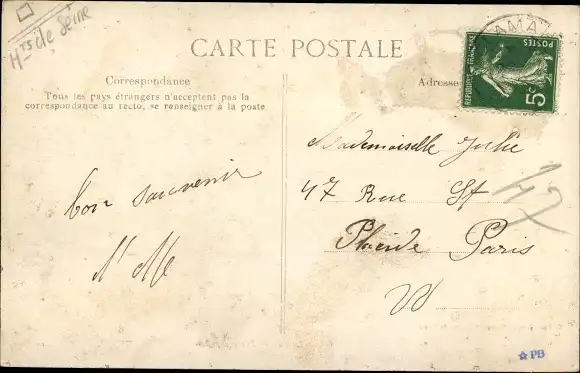 Hts de Seine
CARTE POSTALE
Correspondance
Tous les pays étrangers n'acceptent pas la
correspondance au recto, se renseigner à la poste
Bon souvenir
Adresse
AMA
POSTES
REPUBLIQUE FRANÇAISE
5c
Mademoiselle Julie
47 Rue St
Placide Paris
47
☆ PB